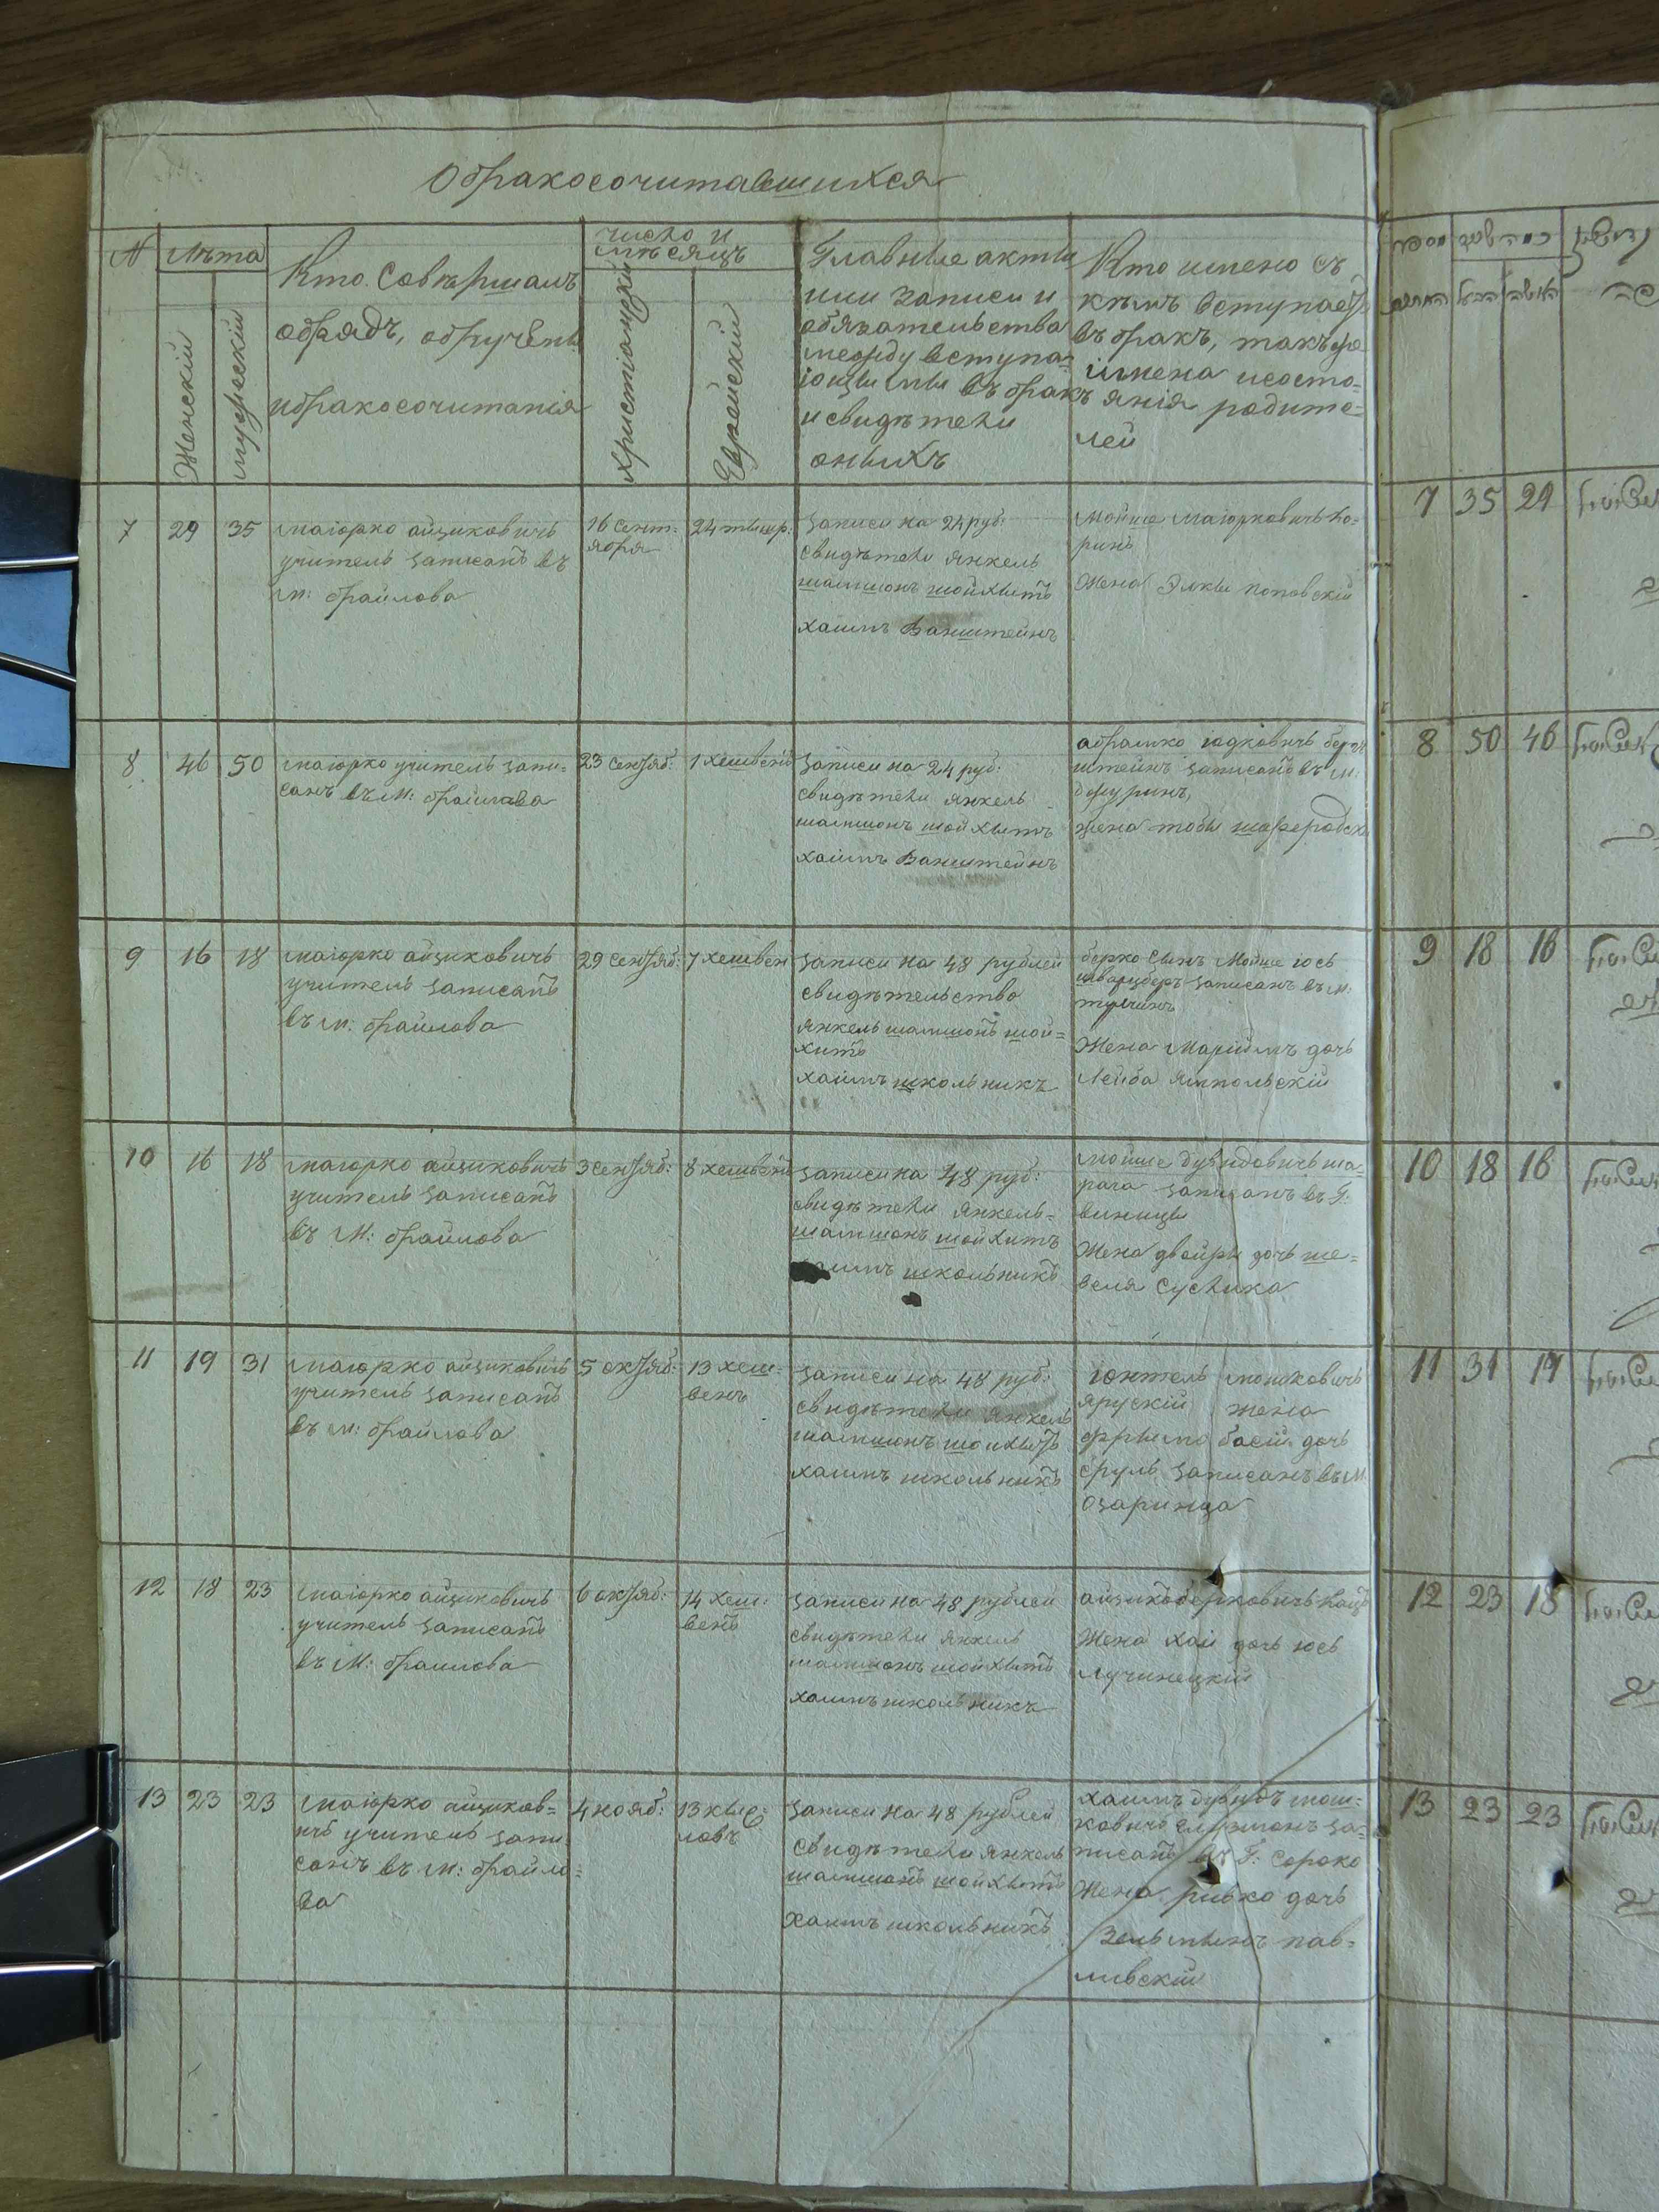 О бракосочитавшихся
№
Лѣта
Женскій
мужескій
Кто совѣршалъ
обрядъ, обручень
ибракосочитанія
число и
мѣсяцъ
Христіанукій
Еврейскій
Главные акты
или записи и
обязательства
между вступа-
ющыми въ бракъ
и свидѣтели
оныхъ
Кто имено съ
кѣмъ вступаетъ
въ бракъ, такъже
имена исосто-
янія родите-
лей
7 29 35
маіорко айзиковичъ
учитель записанъ въ
м: браилова
16 сент-
ября
24 тишр:
записи на 24 руб:
свидѣтели янкель
шамшонъ шойхытъ
хаимъ Ванштейнъ
Мойше маіорковичъ
Жена Элкы поповскій
8 46 50
маіорко учитель запи-
санъ въ м: браилова
23 сентяб:
1 хешвенъ
записи на 24 руб:
свидѣтели янкель
шамшонъ шойхытъ
хаимъ Ванштейнъ
абрамко юдковичъ
штейнъ записанъ въ м:
джуринъ,
жена тобы
9 16 18
маіорко айзиковичъ
учитель записанъ
въ м: браилова
29 сентяб:
7 хешвен
записи на 48 рублей
свидѣтельство
янкель шамшонъ шой-
хитъ
хаимъ школьникъ
берко сынъ Мойше юсь
записанъ въ м:
Жена Марийамъ дочь
Лейба ямпольскій
10 16 18
маіорко айзиковичъ
учитель записанъ
въ м: браилова
3 сентяб:
8 хешвенъ
записи на 48 руб:
свидѣтели янкель-
шамшонъ шойхитъ
школьникъ
мойше дувидовичъ ша-
рага записанъ въ г:
виницы
Жена двойры дочь ше-
веля суслика
11 19 31
маіорко айзиковичъ
учитель записанъ
въ м: браилова
5 октяб:
13 хеш-
венъ
записи на 48 руб:
свидѣтели янкель
шамшонъ шойхытъ
хаимъ школьникъ
юктель мошковичъ
ярускій жена
басіи дочь
сруль записанъ въ м
озаринца
12 18 23
маіорко айзиковичъ
учитель записанъ
въ м: браилова
6 октяб:
14 хеш:
венъ
записи на 48 рублей
свидѣтели янкель
шамшонъ шойхытъ
хаимъ школьникъ
айзикъ берковичъ кацъ
Жена хаи дочь юсь
лучинецкій
13 23 23
маіорко айзиков-
ичъ учитель запи
санъ въ м: браило-
ва
4 нояб:
13 кыс-
ловъ
записи на 48 рублей
свидѣтели янкель
шамшонъ шойхытъ
хаимъ школьникъ
хаимъ дувидъ мош-
ковичъ за-
писанъ въ г: сороко
Жена ривко дочь
Зельманъ пав-
ливскій
7 35 29
8 50 46
9 18 16
10 18 16
11 31 19
12 23 18
13 23 23